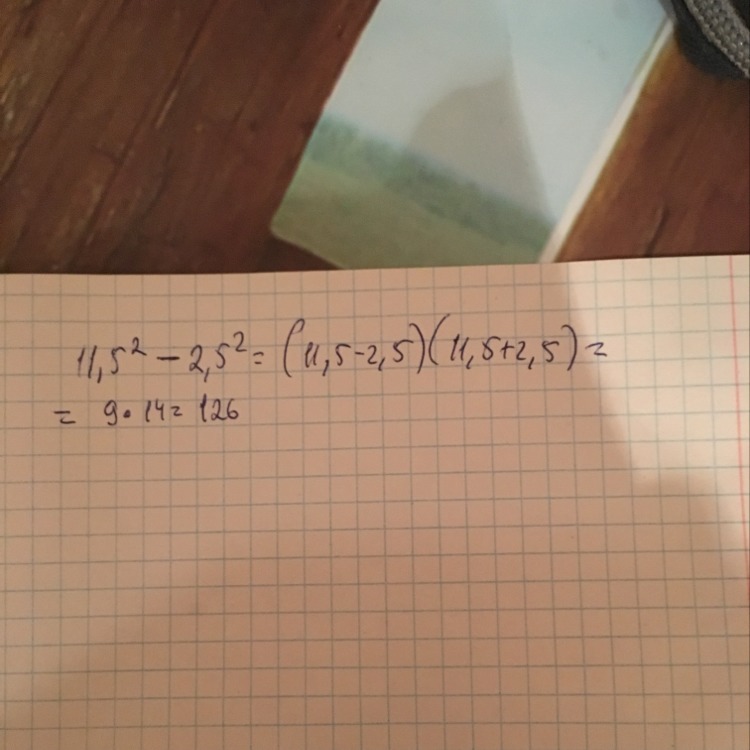 11,5² − 2,5² = (11,5-2,5)(11,5+2,5) =
= 9 • 14 = 126